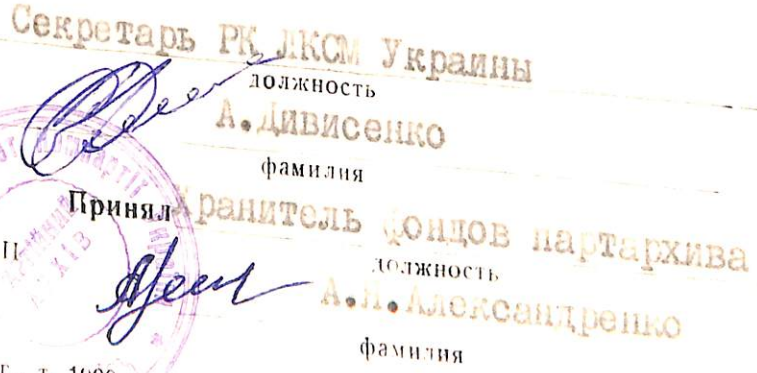 Секретарь РК ЛКСМ Украины
должность
А.Дивисенко
фамилия
Принял Хранитель фондов партархива
должность
А.Я.Александренко
фамилия